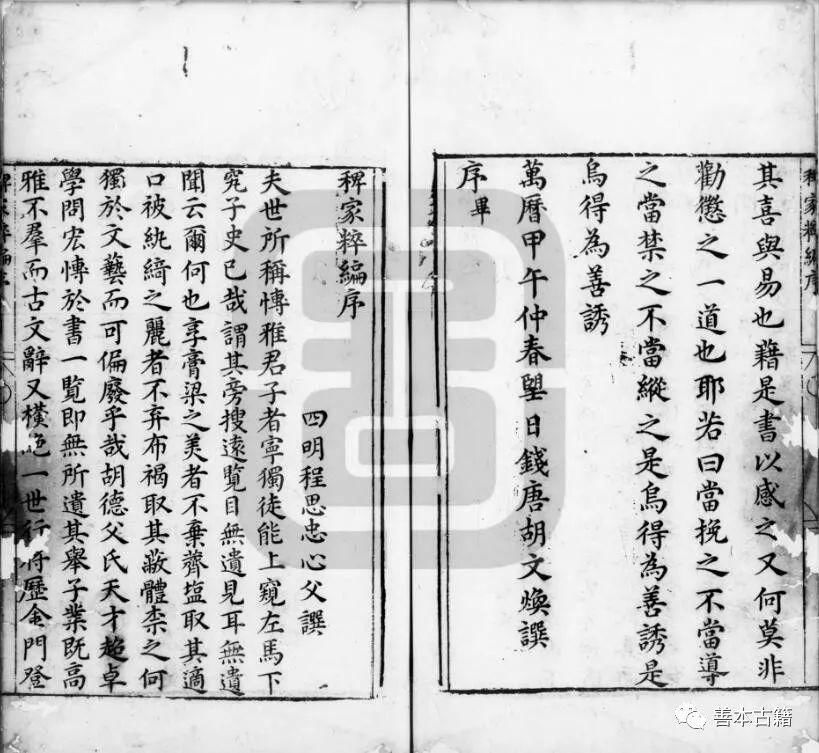 稗家粹編序
其喜與易也藉是書以感之又何莫非
勸懲之一道也耶若曰當挽之不當導
之當禁之不當縱之是烏得為善誘是
烏得為善誘
萬曆甲午仲春望日錢唐胡文煥譔
序畢
稗家粹編序
四明程思忠心父譔
夫世所稱愽雅君子者寧獨徒能上窺左馬下
究子史已哉謂其旁搜遠覽目無遺見耳無遺
聞云爾何也享膏梁之美者不棄虀塩取其適
口被紈綺之麗者不弃布褐取其蔽體柰之何
獨於文藝而可偏廢乎哉胡德父氏天才超卓
學問宏愽於書一覽即無所遺其舉子業既高
雅不羣而古文辭又橫絕一世行將歷金門登
稗家粹編序
善本古籍